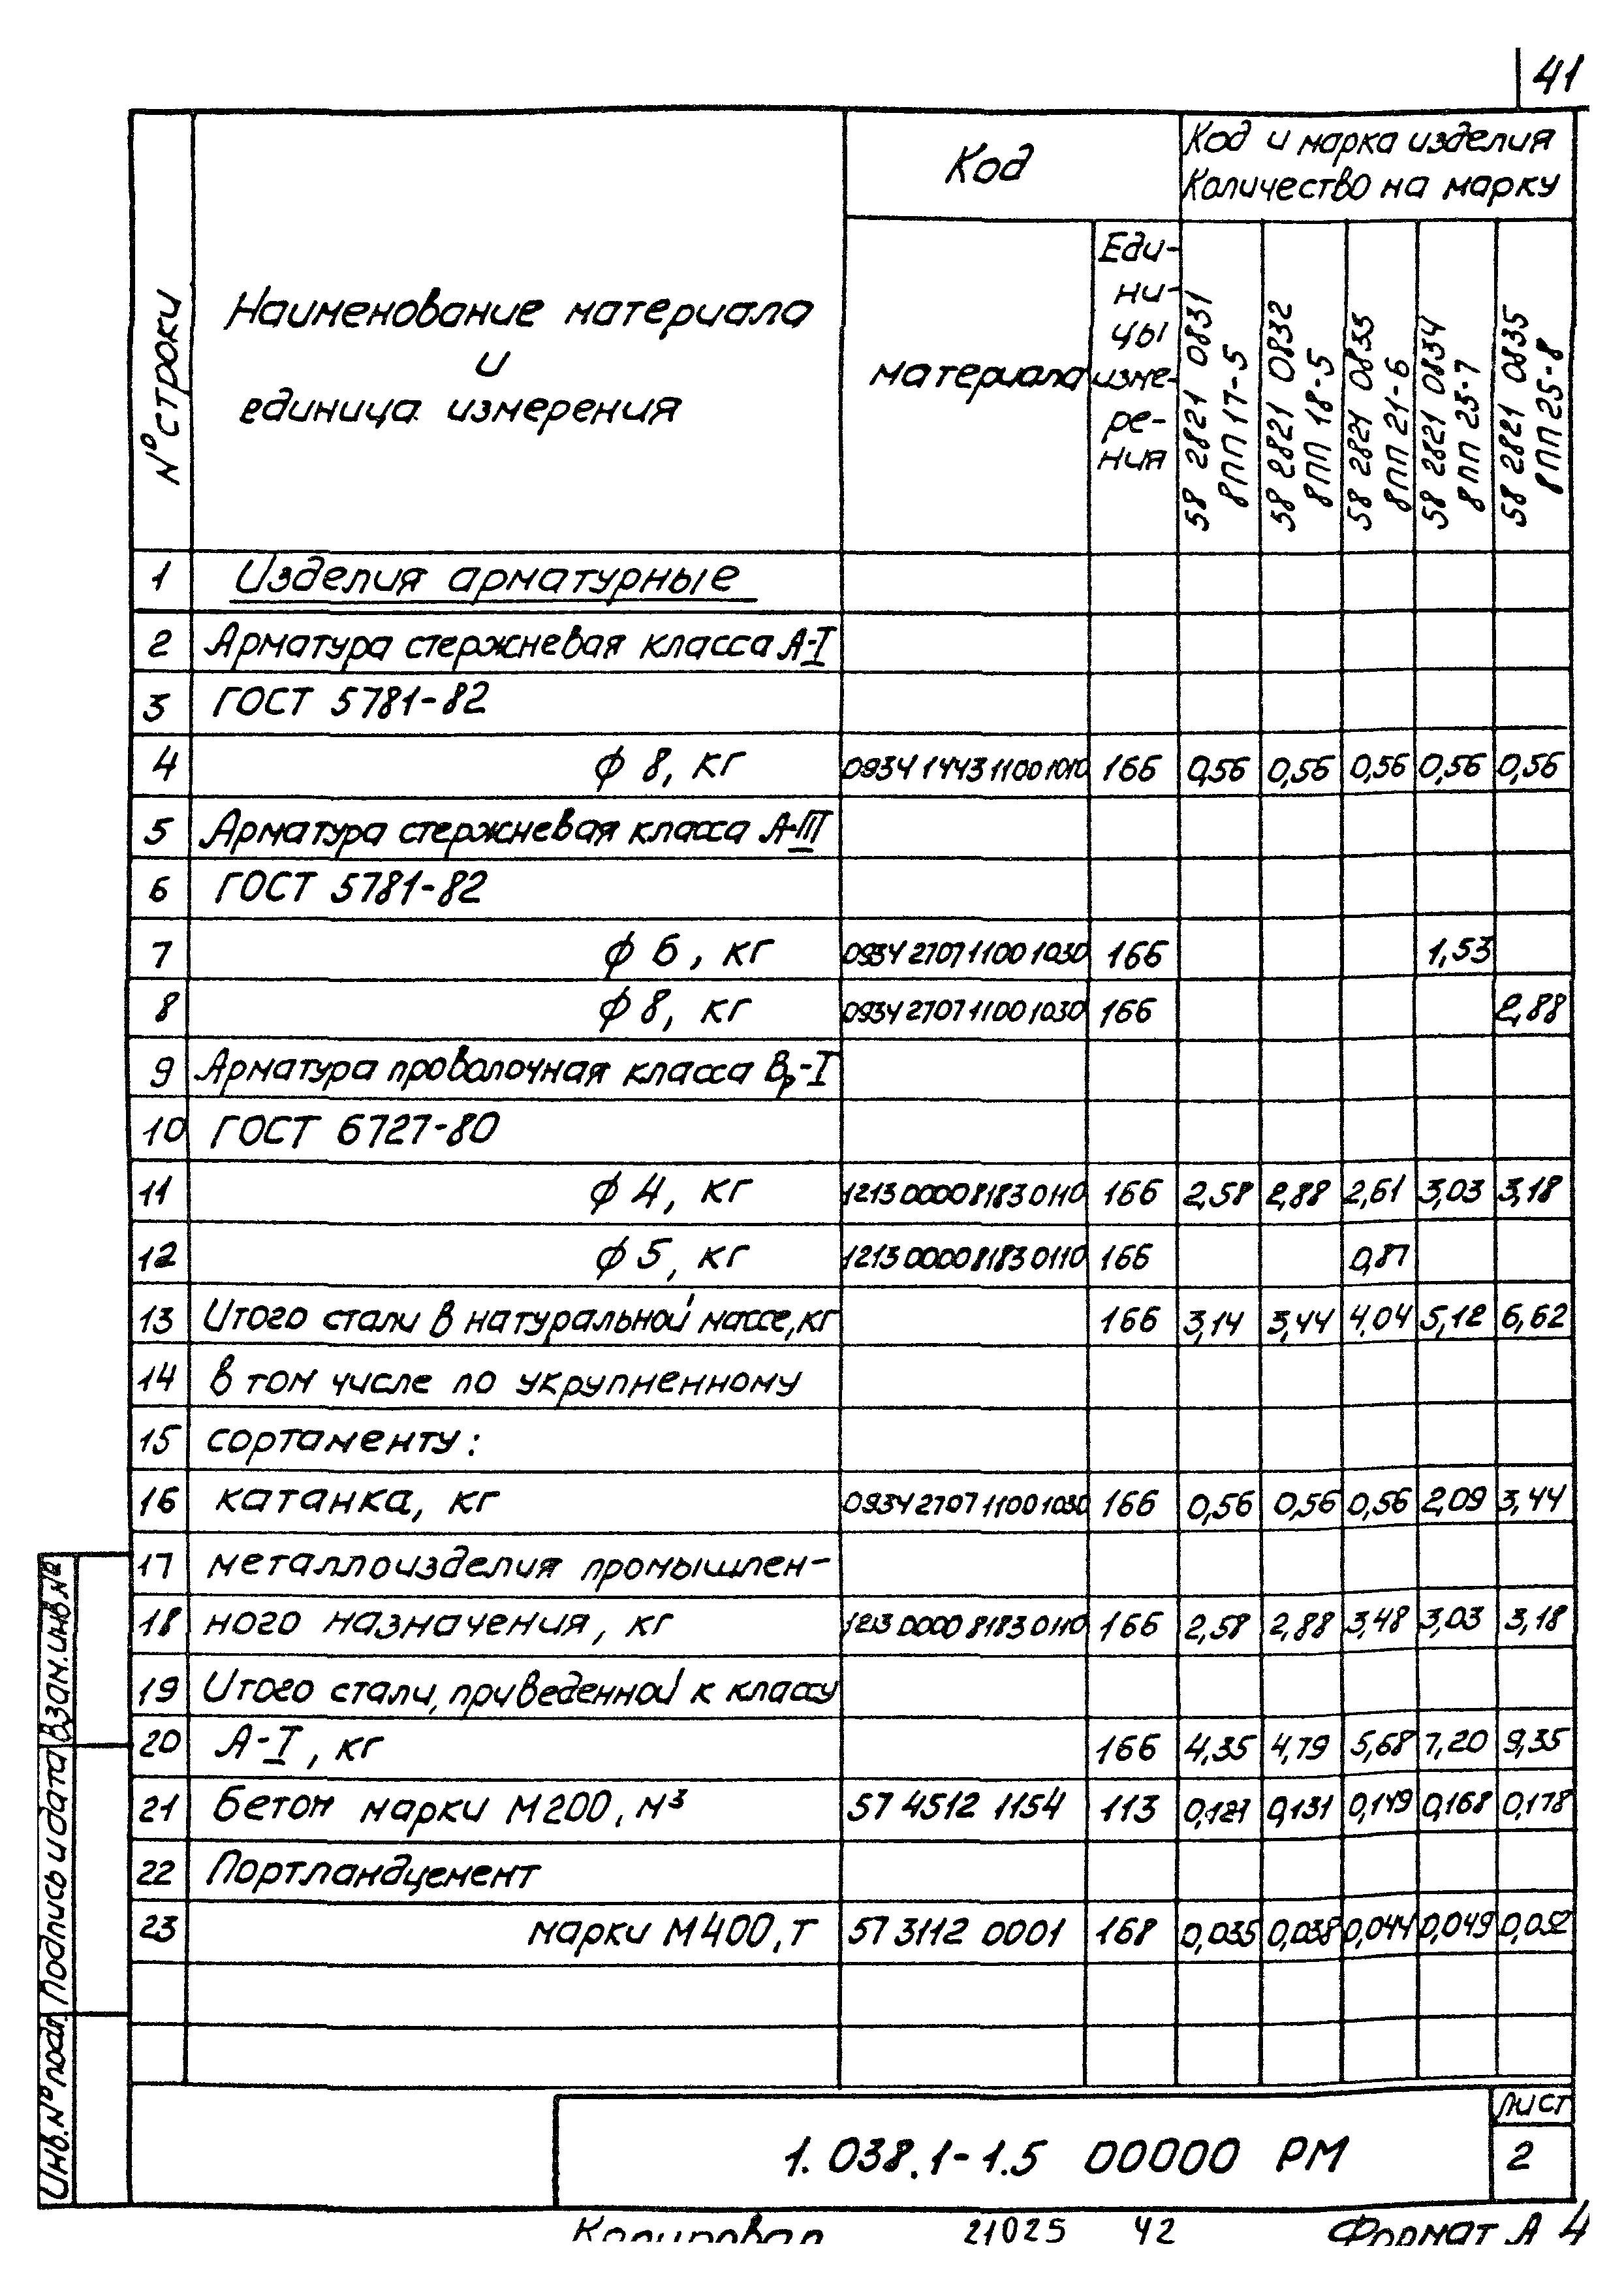 41
№ строки
Наименование материала
и
единица измерения
Код
материала
Еди-
ни-
цы
изме-
ре-
ния
Код и марка изделия
Количество на марку
58 2821 0831
8ПП 17-5
58 2821 0832
8ПП 18-5
58 2821 0833
8ПП 21-6
58 2821 0834
8ПП 25-7
58 2821 0835
8ПП 25-8
1 Изделия арматурные
2 Арматура стержневая класса А-I
3 ГОСТ 5781-82
4 ф 8, кг 0934 1443 1100 1010 166 0,56 0,56 0,56 0,56 0,56
5 Арматура стержневая класса А-III
6 ГОСТ 5781-82
7 ф 6, кг 0934 2707 1100 1030 166 1,53
8 ф 8, кг 0934 2707 1100 1030 166 2,88
9 Арматура проволочная класса Вр-I
10 ГОСТ 6727-80
11 ф 4, кг 1213 0000 8183 0110 166 2,58 2,88 2,61 3,03 3,18
12 ф 5, кг 1213 0000 8183 0110 166 0,87
13 Итого стали в натуральной массе, кг 166 3,14 3,44 4,04 5,12 6,62
14 в том числе по укрупненному
15 сортаменту:
16 катанка, кг 0934 2707 1100 1030 166 0,56 0,56 0,56 2,09 3,44
17 металлоизделия промышлен-
18 ного назначения, кг 1213 0000 8183 0110 166 2,58 2,88 3,48 3,03 3,18
19 Итого стали, приведенной к классу
20 А-I, кг 166 4,35 4,79 5,68 7,20 9,35
21 Бетон марки М200, м³ 57 4512 1154 113 0,121 0,131 0,149 0,168 0,178
22 Портландцемент
23 марки М400, т 57 3112 0001 168 0,035 0,038 0,044 0,049 0,052
Взам. инв. №
Подпись и дата
Инв. № подл
1.038.1-1.5 00000 РМ
Лист
2
Копировал 21025 42 Формат А4